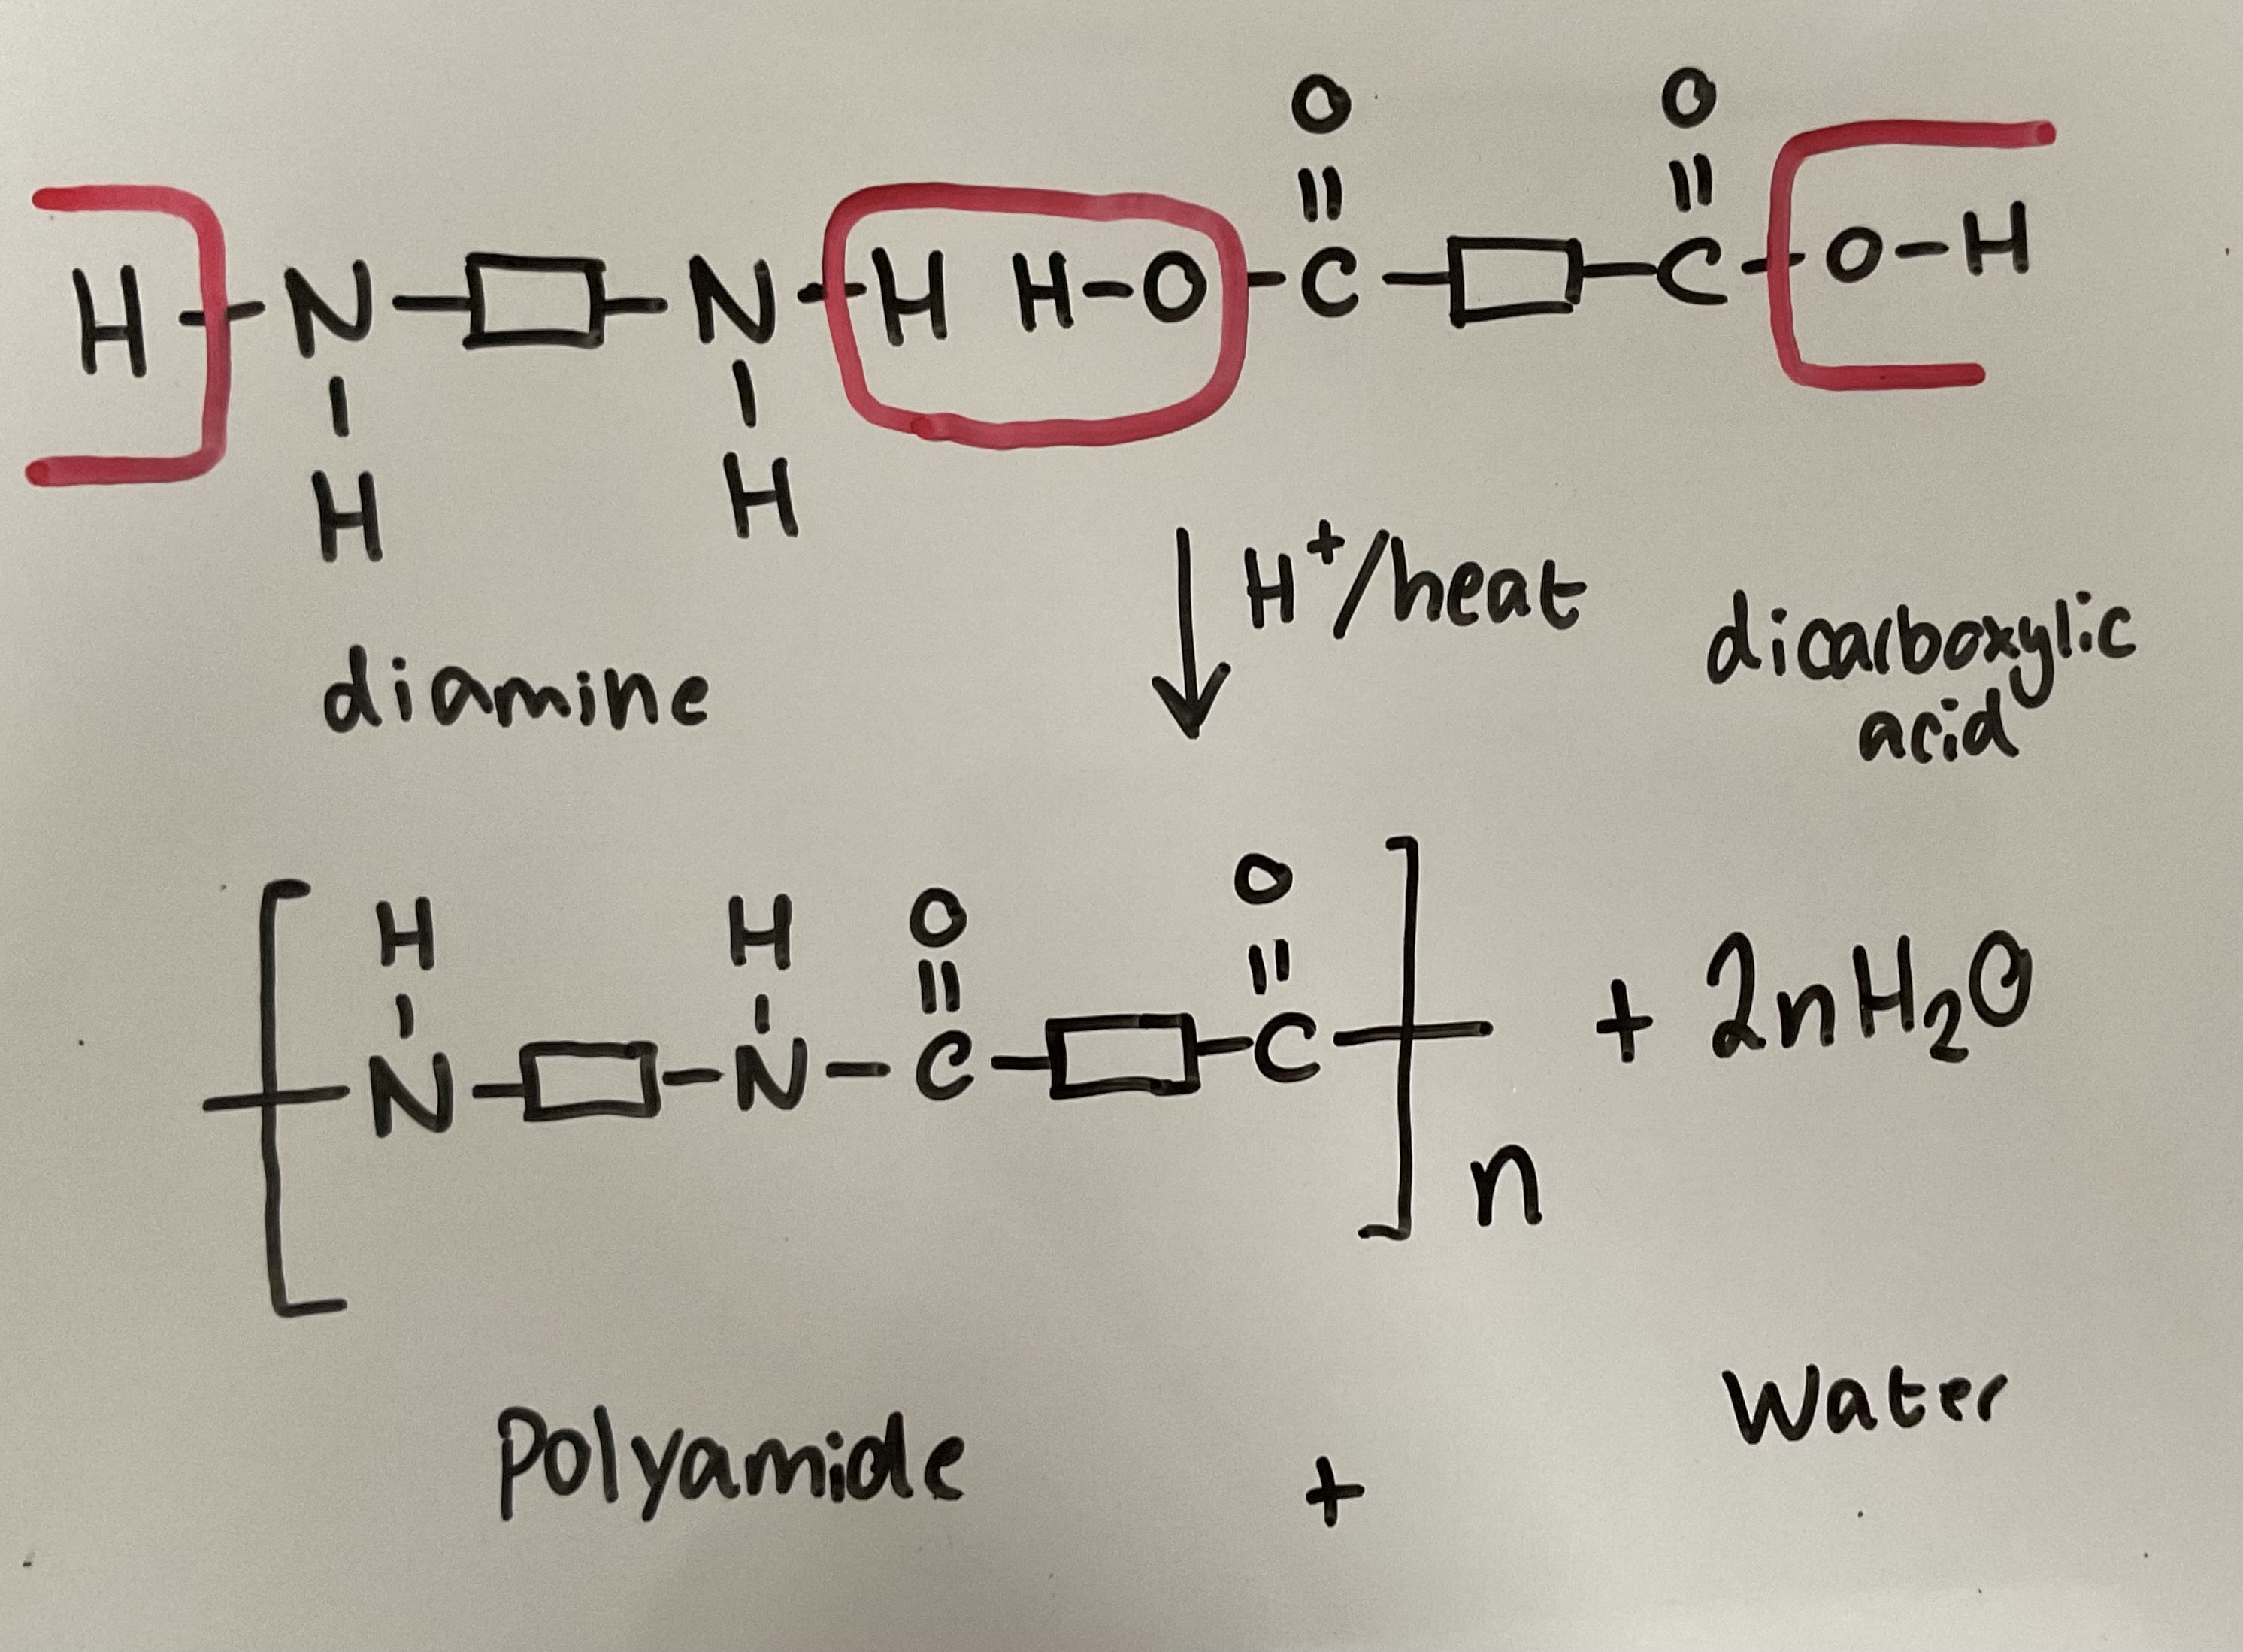 O O
|| ||
H-N-▭-N-H H-O-C-▭-C-O-H
| |
H H
H⁺/heat
diamine
dicarboxylic
acid
H H O O
| | || ||
[-N-▭-N-C-▭-C-]n + 2nH₂O
Polyamide + Water